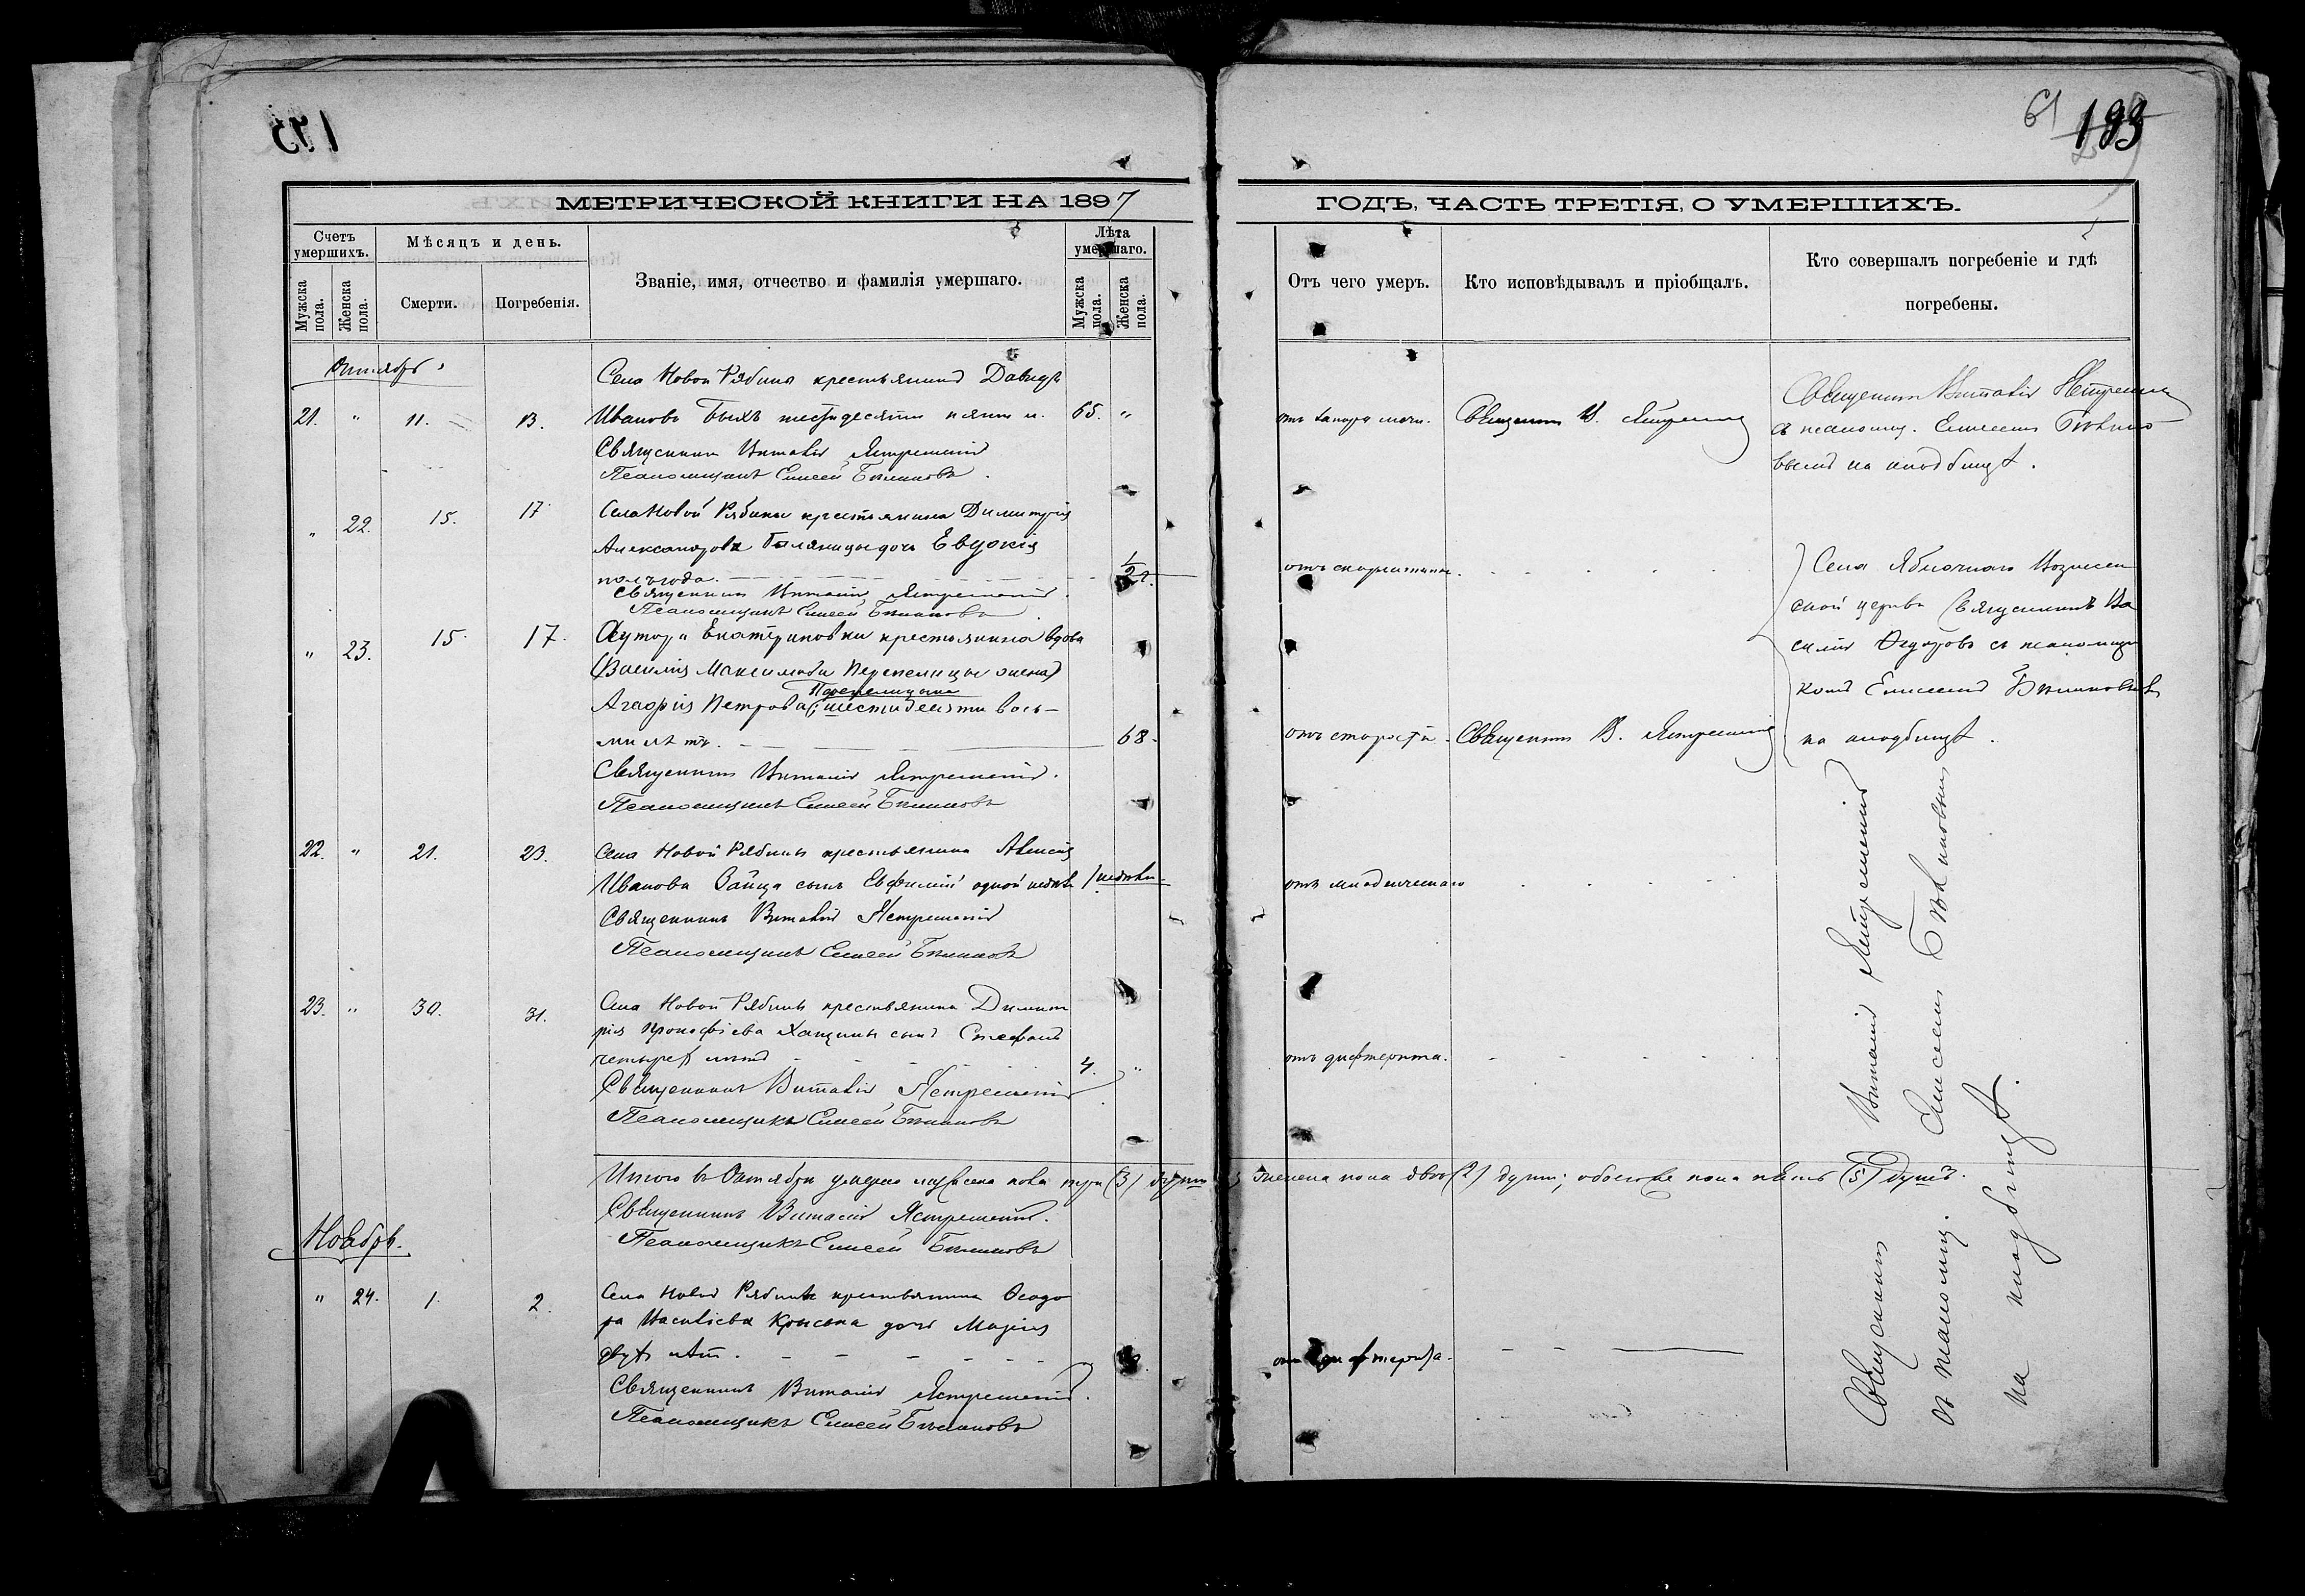 173
61
193
МЕТРИЧЕСКОЙ КНИГИ НА 1897
ГОДЪ, ЧАСТЬ ТРЕТІЯ, О УМЕРШИХЪ.
Счетъ умершихъ.
Мѣсяцъ и день.
Званіе, имя, отчество и фамилія умершаго.
Лѣта умершаго.
Мужска пола.
Женска пола.
Смерти.
Погребенія.
Мужска пола.
Женска пола.
Отъ чего умеръ.
Кто исповѣдывалъ и пріобщалъ.
Кто совершалъ погребеніе и гдѣ
погребены.
Октябрь
Села Новой Рябины крестьянинъ Давидъ
21. " 11. 13. Ивановъ Быхъ шестьдесяти пяти л. 65. "
Священникъ Виталій Ястремскій
Псаломщикъ Елисей Бѣликовъ.
отъ
Священникъ В. Ястремскій
Священникъ Виталій Ястремскій
съ псаломщ. Елисеем Бѣлико
вымъ на кладбищѣ.
" 22. 15. 17 Села Новой Рябины крестьянина Димитрія
Александрова дочь Евдокія
полъгода. 1/2 г.
Священникъ Виталій Ястремскій.
Псаломщикъ Елисей Бѣликовъ
отъ скарлатины.
" 23. 15. 17. Хутора Екатериновки крестьянина вдова
(Василія Максимова Перепелицы жена)
Перепелицына
Агафія Петрова, шестидесяти вось-
ми лѣтъ. 68.
Священникъ Виталій Ястремскій.
Псаломщикъ Елисей Бѣликовъ
отъ старости.
Священникъ В. Ястремскій
Села Яблочнаго Вознесен
ской церкви Священникъ Ва
силій Федоровъ съ псаломщи
комъ Елисеемъ Бѣликовымъ
на кладбищѣ.
22. " 21. 23. Села Новой Рябины крестьянина Алексія
Иванова Зайца сынъ Евфимій одной недѣли 1 недѣли
Священникъ Виталій Ястремскій
Псаломщикъ Елисей Бѣликовъ
отъ младенческаго
23. " 30. 31. Села Новой Рябины крестьянина Димит
рія Прокофіева сынъ Стефанъ
четырехъ лѣтъ 4. "
Священникъ Виталій Ястремскій
Псаломщикъ Елисей Бѣликовъ
отъ дифтерита.
Итого въ Октябрѣ умерло мужеска пола три (3) души; женска пола двѣ (2) души; обоего пола пять (5) душъ.
Священникъ Виталій Ястремскій.
Псаломщикъ Елисей Бѣликовъ
Ноябрь.
" 24. 1. 2. Села Новой Рябины крестьянина Өеодо
ра Василіева дочь Марія
двухъ лѣтъ.
Священникъ Виталій Ястремскій.
Псаломщикъ Елисей Бѣликовъ
отъ дифтерита.
Священникъ Виталій Ястремскій
съ псаломщ. Елисеем Бѣликовымъ
на кладбищѣ.